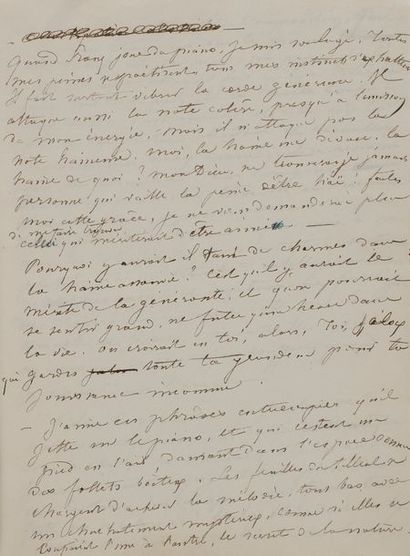 Quand Franz joue du piano, je suis soulagé. Toutes
mes peines se poétisent, tous mes instincts s'exaltent.
Il fait surtout vibrer la corde généreuse. Il
attaque aussi la note colère, presqu'à l'unisson
de mon énergie, mais il n'attaque pas la
note haineuse. moi, la haine me dévore, la
haine de quoi? mon Dieu, ne trouverai-je jamais
personne qui vaille la peine d'être haï! faites
moi cette grâce, je ne vous demanderai plus
de me faire trouver
celui qui mériterait d'être aimé. —
Pourquoi y aurait-il tant de charmes dans
la haine C'est qu'il y aurait le
mérite de la générosité, et qu'on pourrait
se sentir grand, ne fut-ce qu'une heure dans
la vie. On croirait en toi, alors, toi,
qui gardes toute ta grandeur pour ta
jouissance inconnue.
— J'aime ces phrases entrecoupées qu'il
jette sur le piano, et qui restent un
pied en l'air dansant dans l'espace comme
des follets boiteux. Les feuilles des tilleuls se
chargent d'achever la mélodie, tout bas, avec
un chuchotement mystérieux, comme si elles se
confiaient l'une à l'autre, le secret de la nature